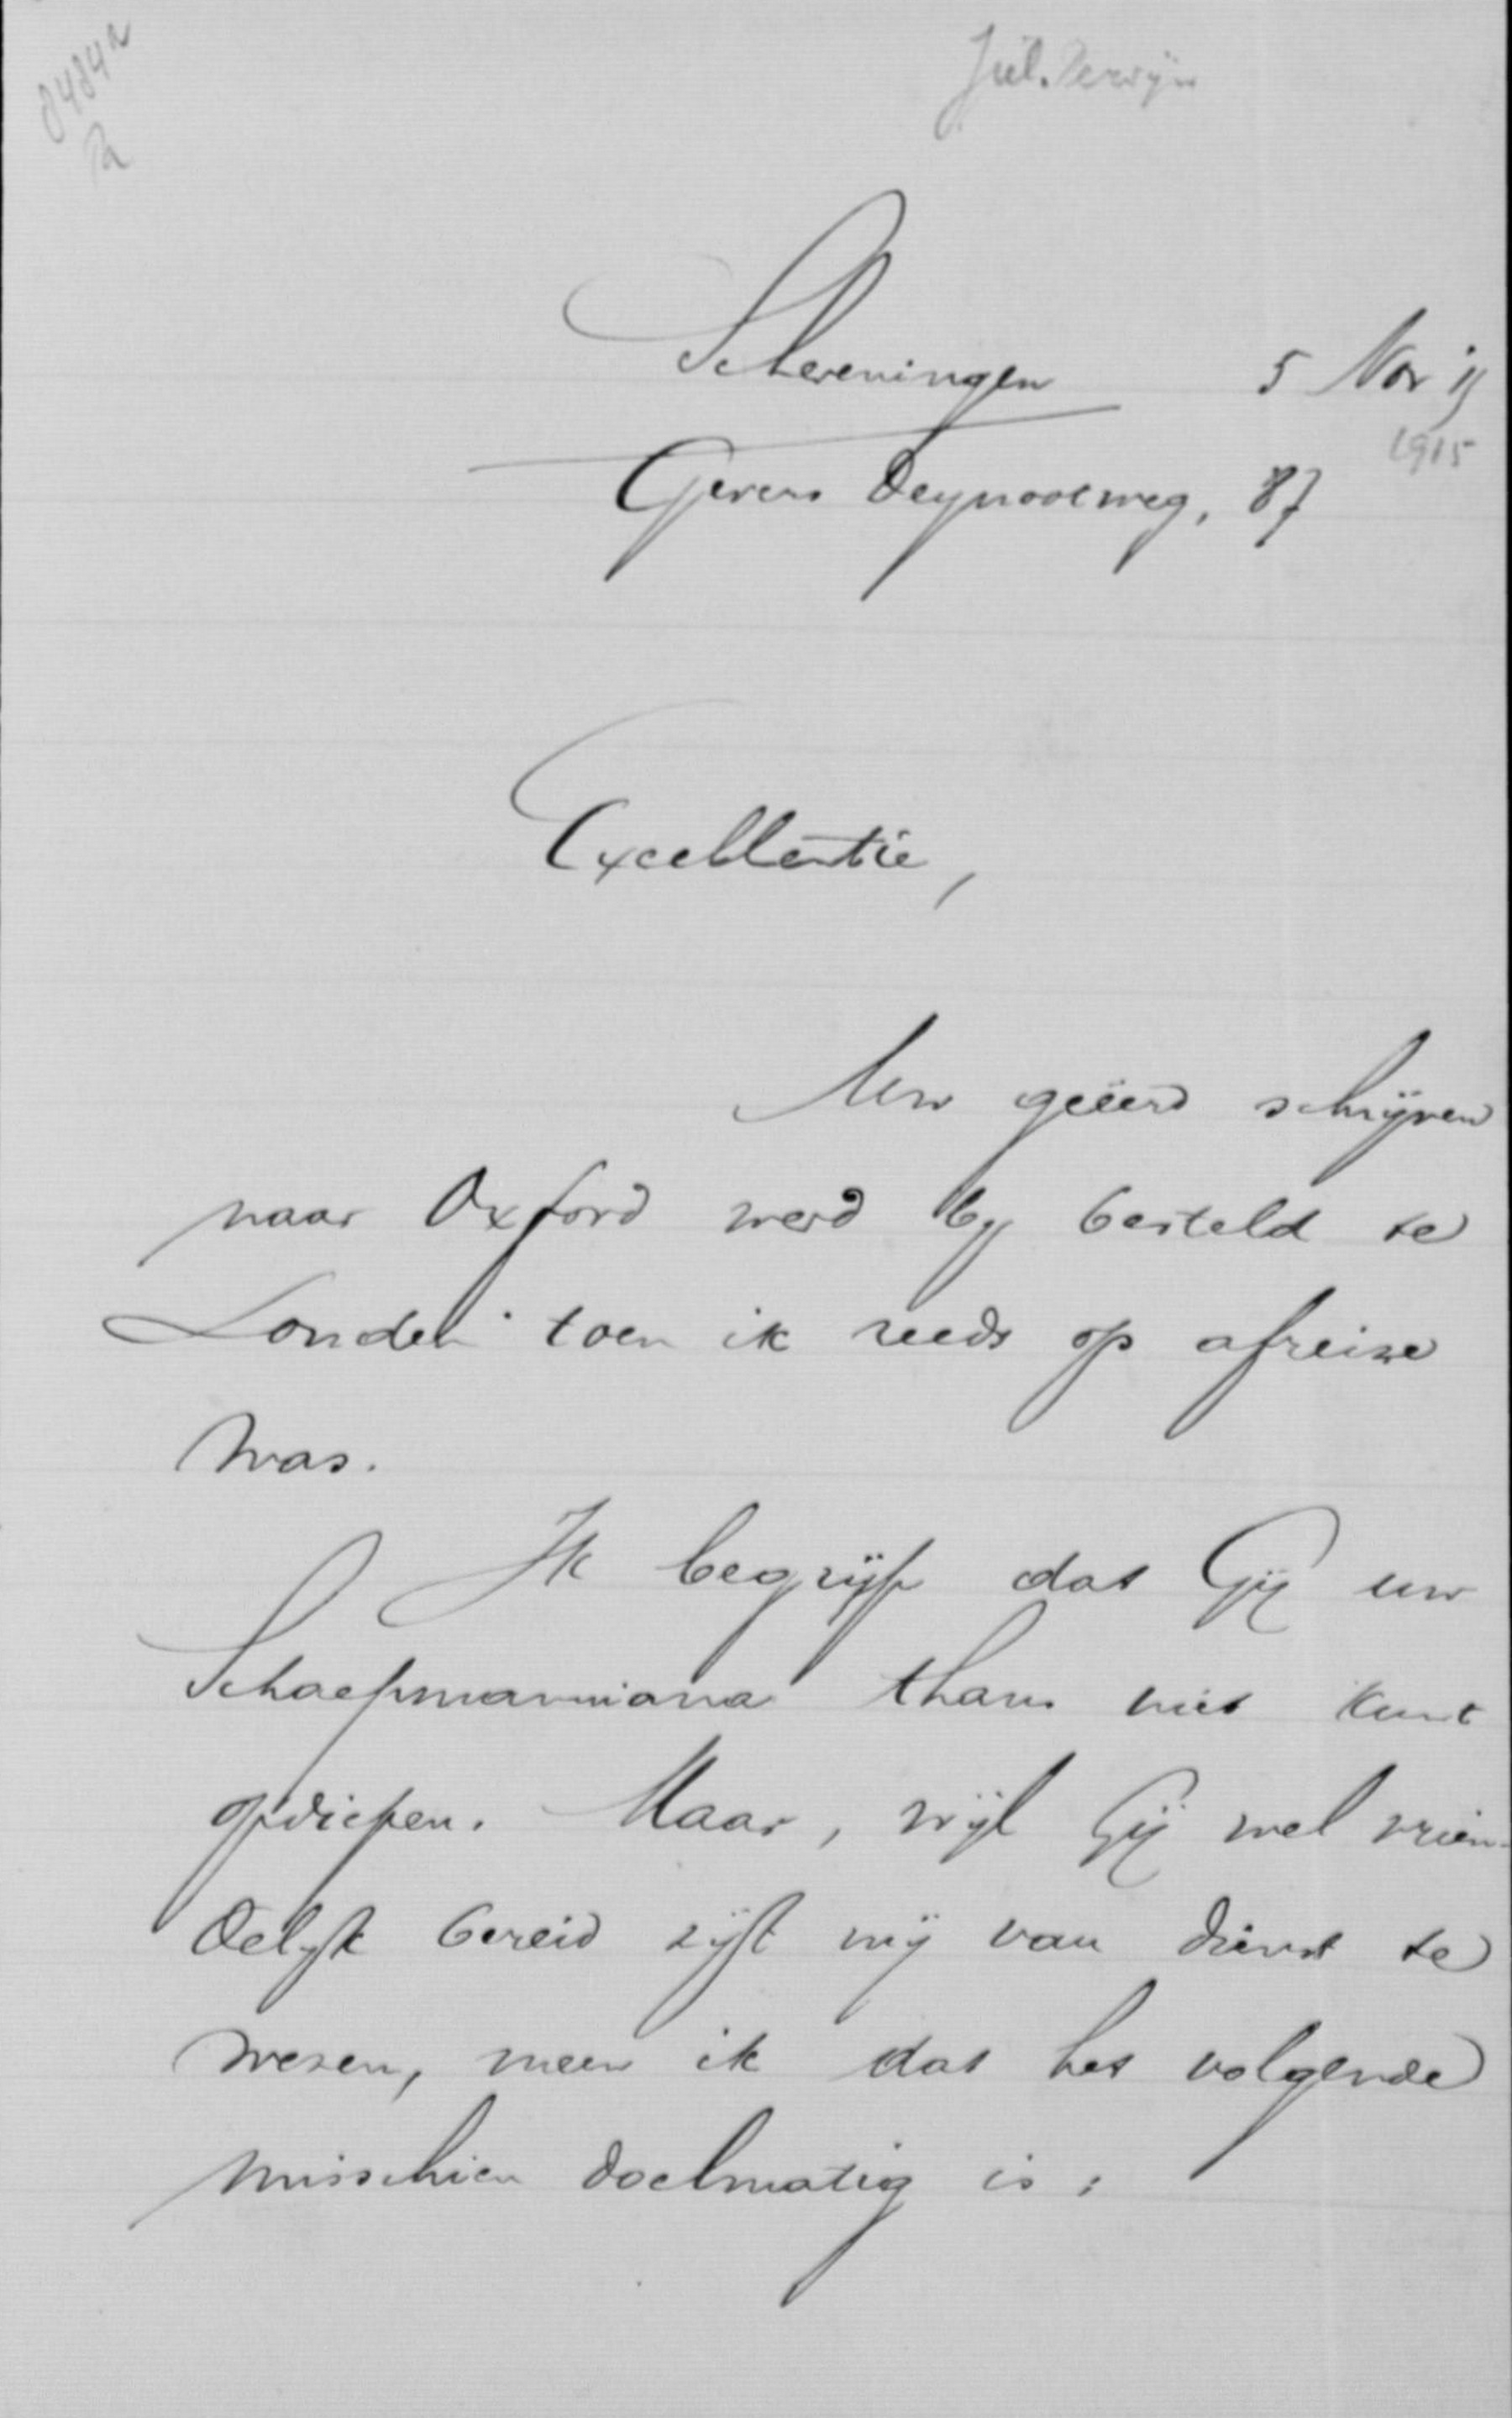 8484a
2a
Jul. Persyn
Scheveningen 5 Nov 15
1915
Gevers Deynootweg, 87
Excellentie,
Uw geëerd schrijven
naar Oxford werd bij besteld te
Londen toen ik reeds op afreize
was.
Ik begrijp dat Gij uw
Schaepmanniana thans niet kunt
opdiepen. Maar, wijl Gij wel vrien-
delijk bereid zijt mij van dienst te
wezen, meen ik dat het volgende
misschien doelmatig is: